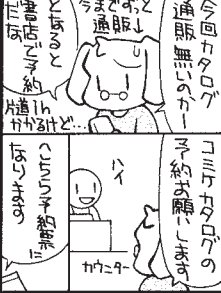 今回カタログ
通販無いのかー
今までずっと
通販」
となると
書店で予約
だな
片道1h
かかるけど…
コミケカタログの
予約お願いします
ハイ
カウンター
こちら予約票に
なります